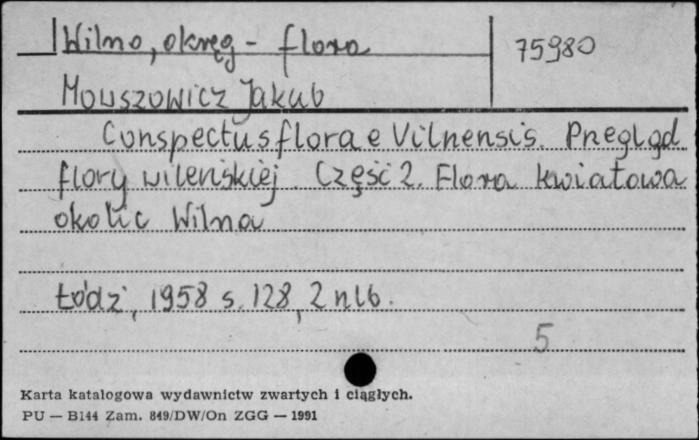 Wilno, okręg - flora 75980
Mowszowicz Jakub
Conspectus florae Vilnensis. Pregląd
flory wileńskiej. Część 2. Flora kwiatowa
okolic Wilna
Łódź, 1958 s. 128, 2 nlb.
5
Karta katalogowa wydawnictw zwartych i ciągłych.
PU — B144 Zam. 849/DW/On ZGG — 1991